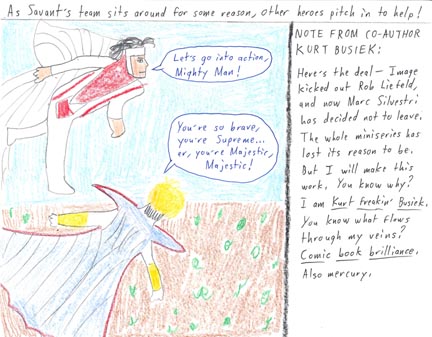 As Savant's team sits around for some reason, other heroes pitch in to help!
Let's go into action,
Mighty Man!
You're so brave,
you're Supreme...
er, you're Majestic,
Majestic!
NOTE FROM CO-AUTHOR
KURT BUSIEK:
Here's the deal — Image
kicked out Rob Liefeld,
and now Marc Silvestri
has decided not to leave.
The whole miniseries has
lost its reason to be.
But I will make this
work. You know why?
I am Kurt freakin' Busiek.
You know what flows
through my veins?
Comic book brilliance.
Also mercury.